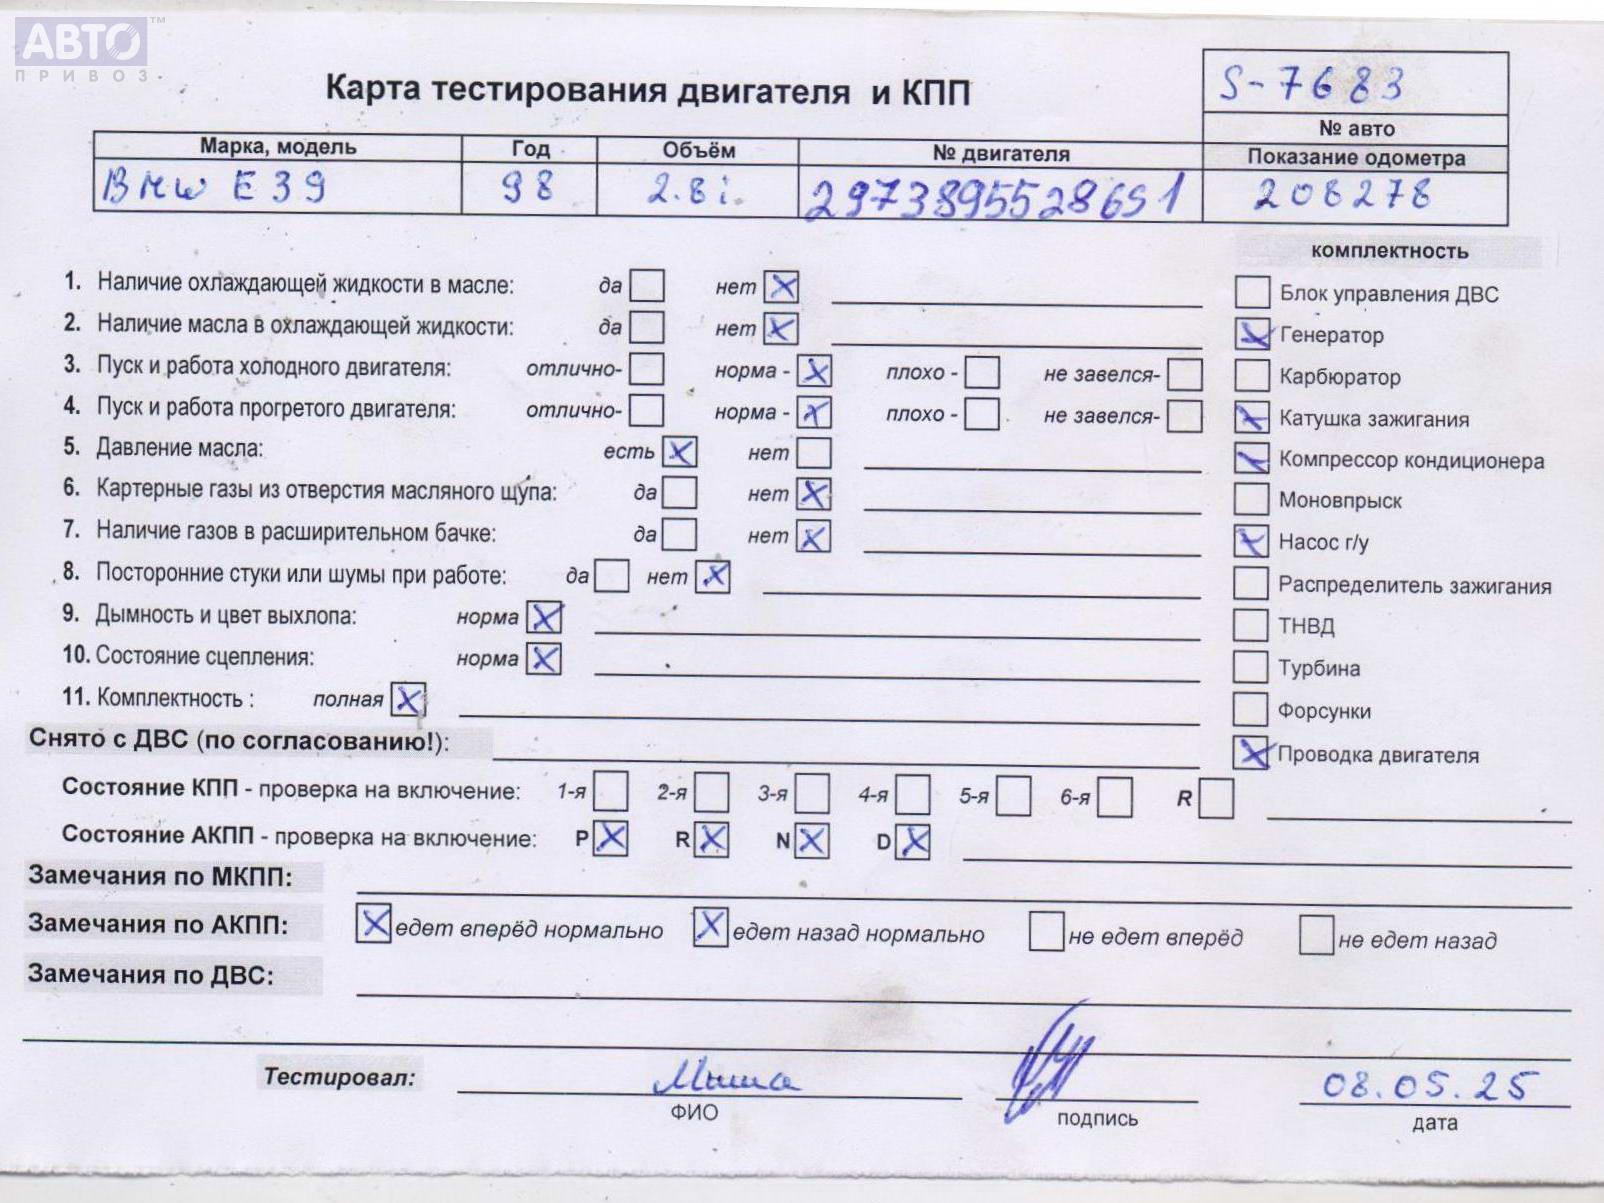 АВТО™
ПРИВОЗ
Карта тестирования двигателя и КПП
S-7683
№ авто
Марка, модель Год Объём № двигателя Показание одометра
BMW E39 98 2.8i. 29738955286S1 208278
комплектность
1. Наличие охлаждающей жидкости в масле: да нет X
Блок управления ДВС
2. Наличие масла в охлаждающей жидкости: да нет X
X Генератор
3. Пуск и работа холодного двигателя: отлично- норма - X плохо - не завелся-
Карбюратор
4. Пуск и работа прогретого двигателя: отлично- норма - X плохо - не завелся-
X Катушка зажигания
5. Давление масла: есть X нет
X Компрессор кондиционера
6. Картерные газы из отверстия масляного щупа: да нет X
Моновпрыск
7. Наличие газов в расширительном бачке: да нет X
X Насос г/у
8. Посторонние стуки или шумы при работе: да нет X
Распределитель зажигания
9. Дымность и цвет выхлопа: норма X
ТНВД
10. Состояние сцепления: норма X
Турбина
11. Комплектность : полная X
Форсунки
Снято с ДВС (по согласованию!):
X Проводка двигателя
Состояние КПП - проверка на включение: 1-я 2-я 3-я 4-я 5-я 6-я R
Состояние АКПП - проверка на включение: P X R X N X D X
Замечания по МКПП:
Замечания по АКПП: X едет вперёд нормально X едет назад нормально не едет вперёд не едет назад
Замечания по ДВС:
Тестировал: Миша 08.05.25
ФИО подпись дата